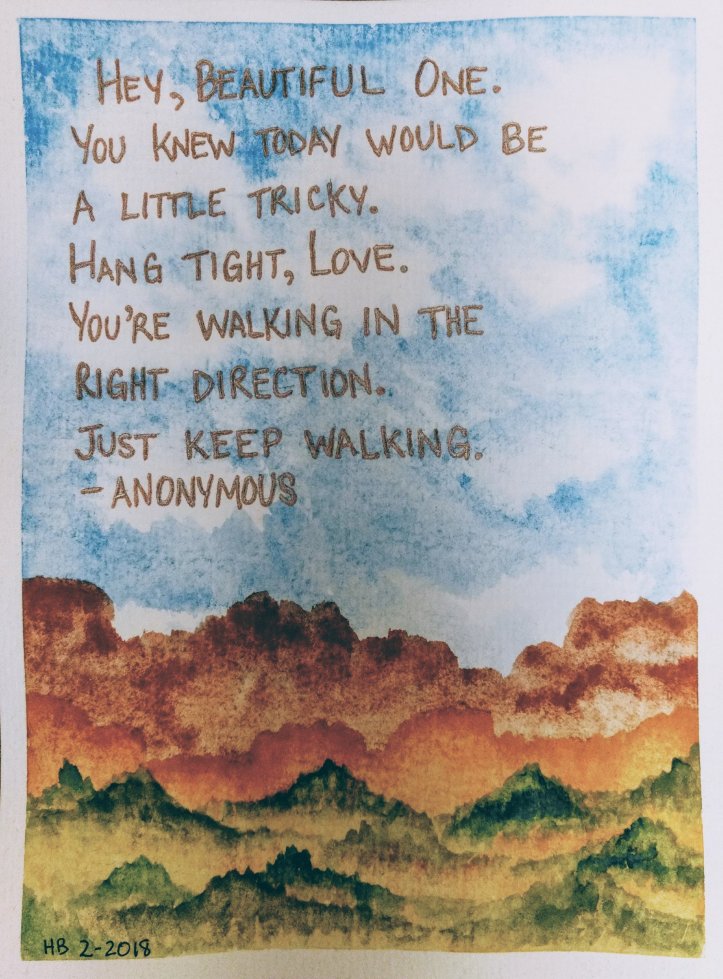 Hey, Beautiful One.
You knew today would be
a little tricky.
Hang tight, Love.
You're walking in the
right direction.
Just keep walking.
- Anonymous
HB 2-2018